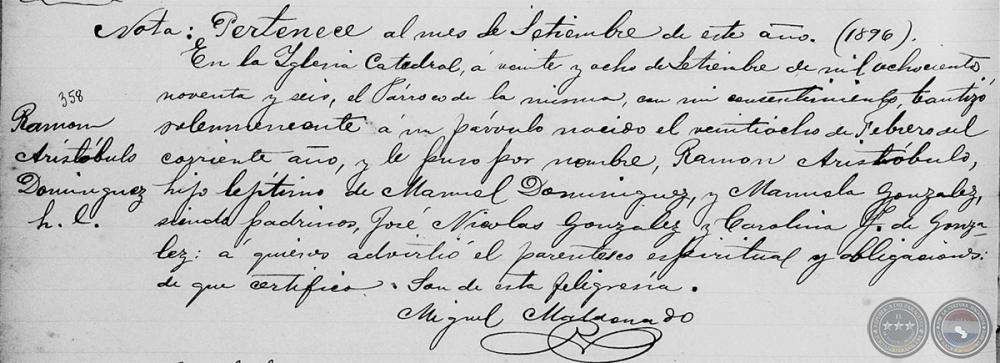 Nota: Pertenece al mes de Setiembre de este año. (1896).
En la Iglesia Catedral, á veinte y ocho de Setiembre de mil ochocientos
noventa y seis, el Párroco de la misma, con mi consentimiento, bautizó
358
Ramon
Aristóbulo
Dominguez
h. l.
solemnemente á un párvulo nacido el veintiocho de Febrero del
corriente año, y le puso por nombre, Ramon Aristóbulo,
hijo lejítimo de Manuel Dominguez, y Manuela Gonzalez,
siendo padrinos, José Nicolas Gonzalez y Carolina F. de Gonza-
lez: á quienes advirtió el parentesco espiritual y obligaciones:
de que certifico. Son de esta feligresía.
Miguel Maldonado